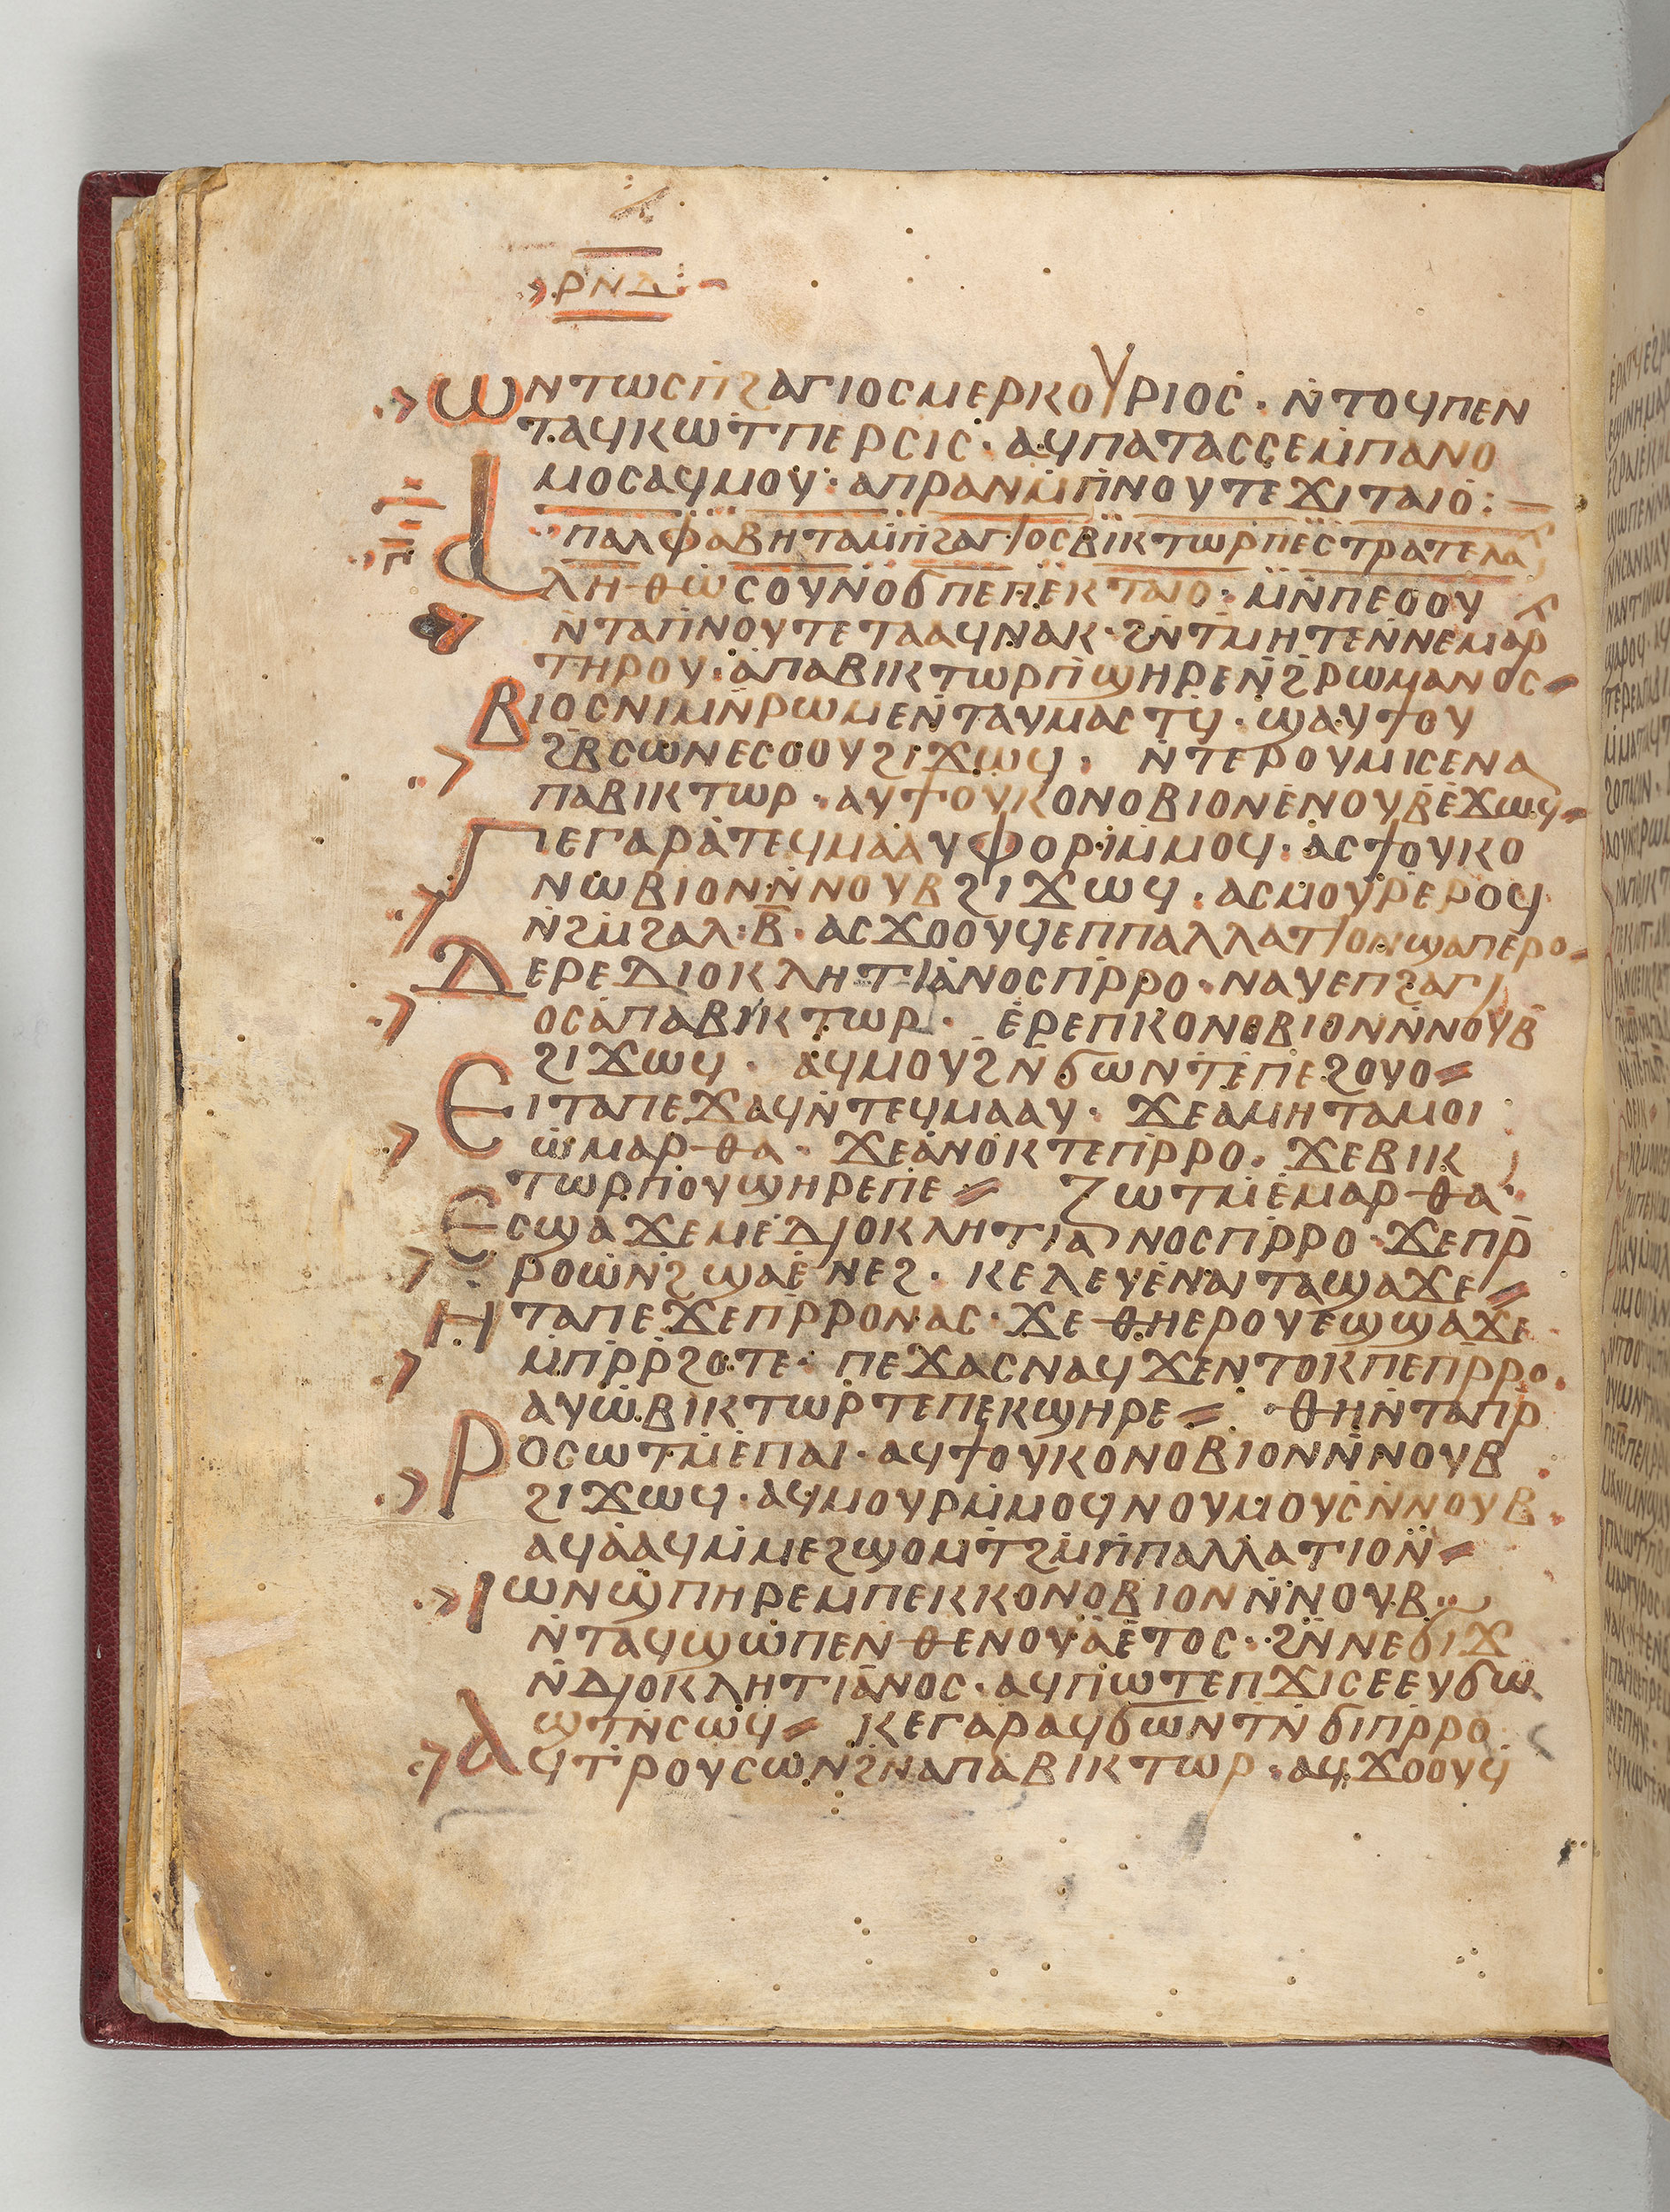 ⲣⲛⲇ
ⲱⲛⲧⲱⲥⲡ̇ϩⲁⲅⲓⲟⲥⲙⲉⲣⲕⲟⲩⲣⲓⲟⲥ̇ · ⲛ̇ⲧⲟϥⲡⲉⲛ
ⲧⲁϥⲕⲱ̇ⲧⲡⲉⲣⲥⲓⲥ · ⲁϥⲡⲁⲧⲁⲥⲥⲉⲙ̇ⲡⲁⲛⲟ
ⲙⲟⲥⲁϥⲙⲟⲩ · ⲁⲡⲣⲁⲛⲙ̇ⲡ̇ⲛⲟⲩⲧⲉϫⲓⲧⲁⲓⲟ̇ :
ⲡⲁⲗⲫⲁⲃⲏⲧⲁⲙ̇ⲡ̇ϩⲁⲅⲓⲟⲥⲃⲓⲕⲧⲱⲣⲡⲉⲥⲧⲣⲁⲧⲉⲗⲁ
ⲁⲗⲏⲑⲱⲥⲟⲩⲛⲟϭⲡⲉⲡⲉⲕⲧⲁⲓⲟ · ⲙⲛ̇ⲡⲉⲟⲟⲩ
ⲛ̇ⲧⲁⲡ̇ⲛⲟⲩⲧⲉⲧⲁⲁϥⲛⲁⲕ · ϩⲛ̇ⲧⲙⲏⲧⲉⲛ̇ⲛⲉⲙⲁⲣ
ⲧⲏⲣⲟⲩ · ⲁ̇ⲡⲁⲃⲓⲕⲧⲱⲣⲡ̇ϣⲏⲣⲉⲛ̇ϩⲣⲱⲙⲁⲛⲟⲥ
ⲃⲓⲟⲥⲛⲓⲙⲛ̇ⲣⲱⲙⲉⲛ̇ⲧⲁⲩⲙⲁⲥⲧϥ · ϣⲁⲩϯⲟⲩ
ϩⲃⲥⲱⲛⲉⲥⲟⲟⲩϩⲓϫⲱϥ · ⲛⲧⲉⲣⲟⲩⲙⲓⲥⲉⲛⲁ
ⲡⲁⲃⲓⲕⲧⲱⲣ · ⲁⲩϯⲟⲩⲕⲟⲛⲟⲃⲓⲟⲛⲉ̇ⲛⲟⲩⲃⲉ̇ϫⲱϥ
ⲅⲉⲅⲁⲣⲁ̇ⲧⲉϥⲙⲁⲁⲩⲫⲟⲣⲓⲙ̇ⲙⲟϥ · ⲁⲥϯⲟⲩⲕⲟ
ⲛⲱⲃⲓⲟⲛⲛ̇ⲛⲟⲩⲃϩⲓϫⲱϥ · ⲁⲥⲙⲟⲩⲣⲉ̇ⲣⲟϥ
ⲛ̇ϩⲙ̇ϩⲁⲗ · ⲃ̅ · ⲁⲥϫⲟⲟⲩϥⲉⲡⲡⲁⲗⲗⲁⲧⲓⲟⲛϣⲁⲡⲉⲣⲟ
ⲇⲉⲣⲉⲇⲓⲟⲕⲗⲏⲧⲓⲁⲛⲟⲥⲡ̇ⲣⲣⲟ · ⲛⲁⲩⲉⲡϩⲁⲅⲓ
ⲟⲥⲁ̇ⲡⲁⲃⲓⲕⲧⲱⲣ · ⲉ̇ⲣⲉⲡⲕⲟⲛⲟⲃⲓⲟⲛⲛ̇ⲛⲟⲩⲃ
ϩⲓϫⲱϥ · ⲁϥⲙⲟⲩϩⲛ̇ϭⲱⲛⲧⲉ̇ⲡⲉϩⲟⲩⲟ
ⲉⲓⲧⲁⲡⲉϫⲁϥⲛ̇ⲧⲉϥⲙⲁⲁⲩ · ϫⲉⲁⲙⲏⲧⲁⲙⲟⲓ
ⲱ̇ⲙⲁⲣⲑⲁ · ϫⲉⲁ̇ⲛⲟ̇ⲕⲧⲉⲡ̇ⲣⲣⲟ · ϫⲉⲃⲓⲕ
ⲧⲱⲣⲡ̇ⲟⲩϣⲏⲣⲉⲡⲉ ⲍⲱⲧⲙ̇ⲉⲙⲁⲣⲑⲁ
ⲉⲥϣⲁϫⲉⲙⲉ̇ⲇⲓⲟⲕⲗⲏⲧⲓⲁⲛⲟⲥⲡ̇ⲣⲣⲟ · ϫⲉⲡⲣ̅
ⲣⲟⲱ̇ⲛ̇ϩϣⲁⲉ̇ⲛⲉϩ · ⲕⲉⲗⲉⲩⲉ̇ⲛⲁⲓⲧⲁϣⲁϫⲉ
ⲏⲧⲁⲡⲉϫⲉⲡ̇ⲣⲣⲟⲛⲁⲥ · ϫⲉⲑⲏⲉⲣⲟⲩⲉϣϣⲁϫⲉ
ⲙ̇ⲡ̇ⲣ̇ⲣ̇ϩⲟⲧⲉ · ⲡⲉϫⲁⲥⲛⲁϥϫⲉⲛⲧⲟⲕⲡⲉⲡ̇ⲣⲣⲟ
ⲁⲩⲱ̇ⲃⲓⲕⲧⲱⲣⲧⲉⲡⲉⲕϣⲏⲣⲉ ⲑⲏⲛ̇ⲧⲁⲡⲣ̇
ⲣⲟⲥⲱⲧⲙ̇ⲉ̇ⲡⲁⲓ · ⲁϥϯⲟⲩⲕⲟⲛⲟⲃⲓⲟⲛⲛ̇ⲛⲟⲩⲃ
ϩⲓϫⲱϥ · ⲁϥⲙⲟⲩⲣⲙ̇ⲙⲟϥⲛⲟⲩⲙⲟⲩⲥ̇ⲛ̇ⲛⲟⲩⲃ
ⲁϥⲁ̇ⲁϥⲙ̇ⲙⲉϩϣⲟⲙ̇ⲧϩⲙ̇ⲡ̇ⲡⲁⲗⲗⲁⲧⲓⲟⲛ
ⲓⲱⲛϣ̇ⲡⲏⲣⲉⲙⲡⲉⲕⲕⲟⲛⲟⲃⲓⲟⲛⲛ̇ⲛⲟⲩⲃ
ⲛ̇ⲧⲁϥϣⲱ̇ⲡⲉⲛⲑⲉⲛⲟⲩⲁ̇ⲉ̇ⲧⲟⲥ · ϩⲛ̇ⲛⲉϭⲓϫ
ⲛ̇ⲇⲓⲟⲕⲗⲏⲧⲓⲁ̇ⲛⲟⲥ · ⲁϥⲡⲱⲧⲉⲡϫⲓⲥⲉⲉⲩϭⲱ
ϣⲧⲛ̇ⲥⲱϥ ⲕⲉⲅⲁ̇ⲣⲁϥϭⲱⲛⲧⲛ̇ϭⲓⲡ̇ⲣⲣⲟ
ⲗϥⲧⲣⲟⲩⲥⲱⲛϩⲛⲁⲡⲁⲃⲓⲕⲧⲱⲣ · ⲁϥϫⲟⲟⲩϥ